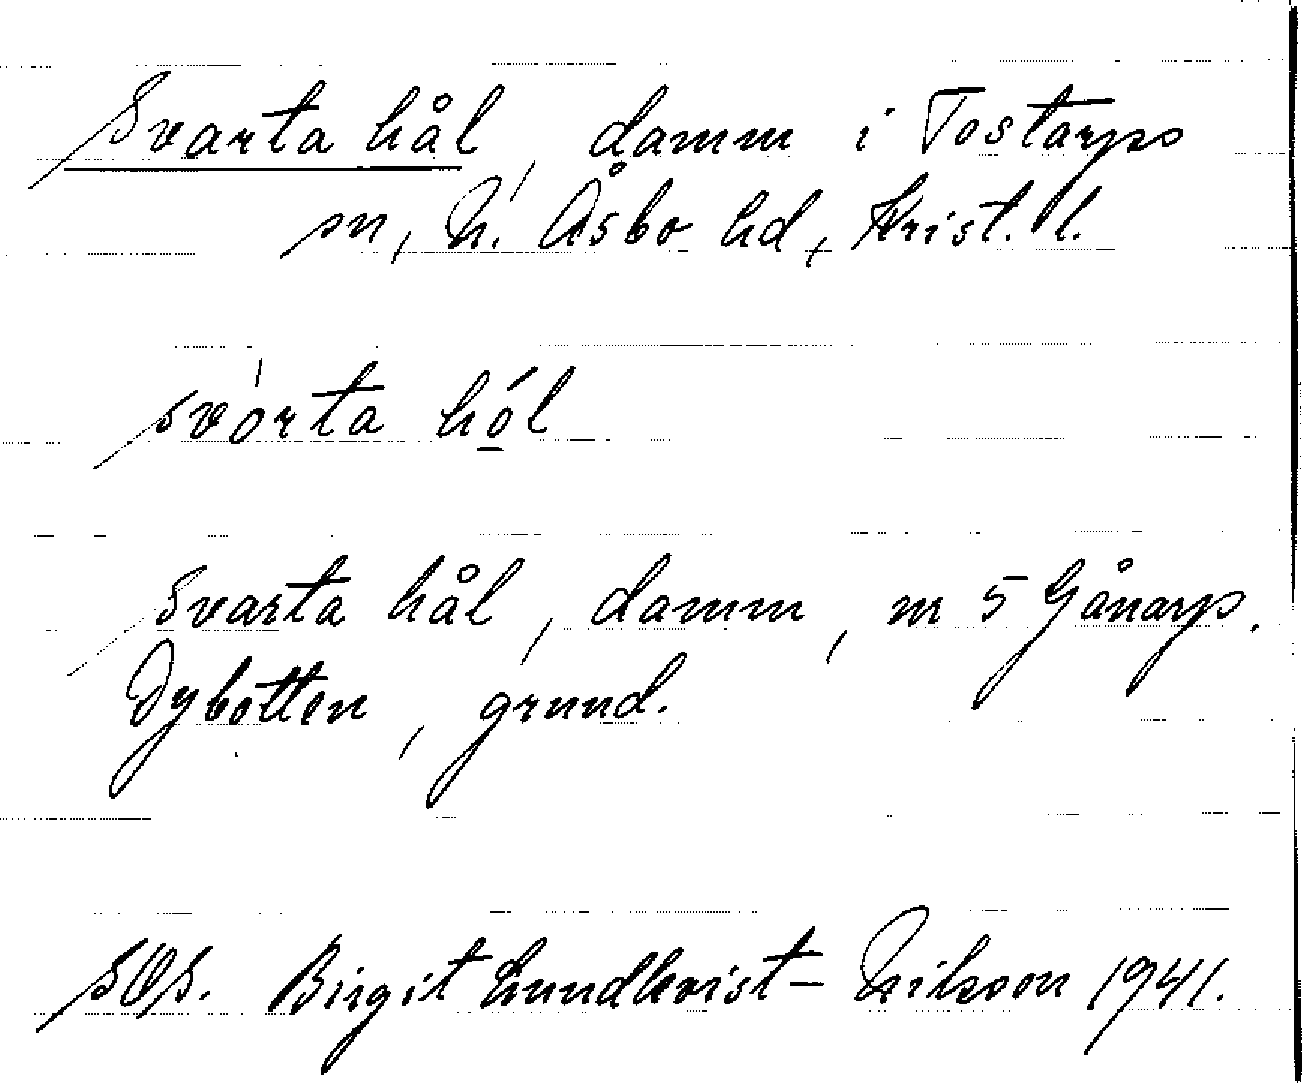 Svarta hål, damm i Tostarps
sn, N. Åsbo hd, Krist. l.
svórta hól
Svarta hål, damm, m 5 Gånarp.
Dybotten, grund.
Birgit Lundkvist-Nilsson 1941.